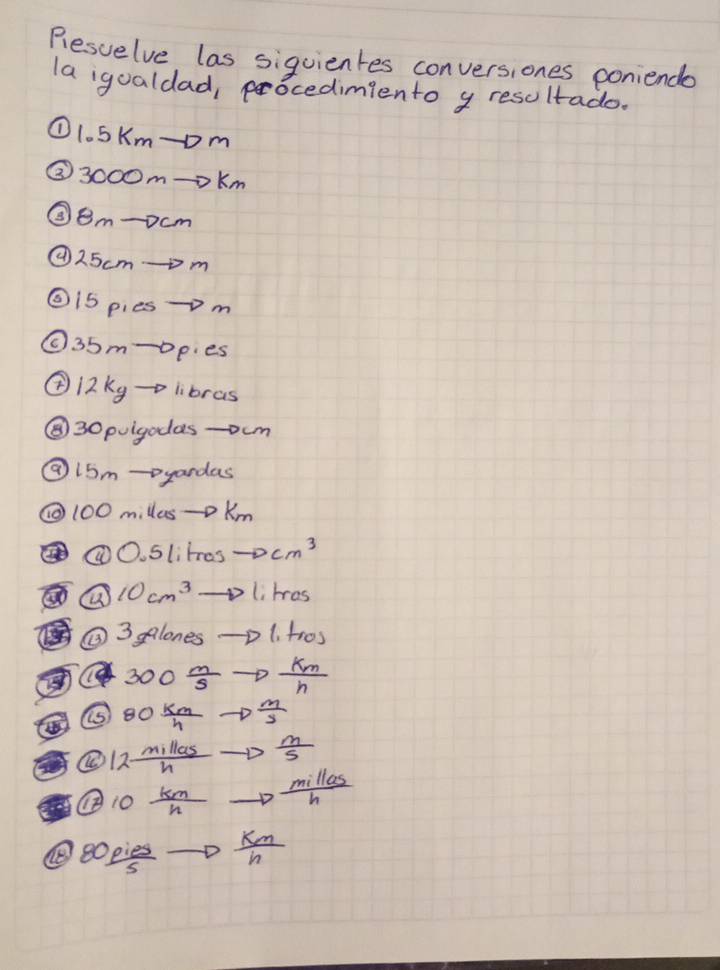 Resuelve las siguientes conversiones poniendo
la igualdad, procedimiento y resultado.
① 1.5 Km → m
② 3000 m → Km
③ 8m → cm
④ 25cm → m
⑤ 15 pies → m
⑥ 35m → pies
⑦ 12 Kg → libras
⑧ 30 pulgadas → cm
⑨ 15m → yardas
⑩ 100 millas → Km
⑪ 0.5 litros → cm³
⑫ 10 cm³ → litros
⑬ 3 galones → litros
⑭ 300 m/s → Km/h
⑮ 80 Km/h → m/s
⑯ 12 millas/h → m/s
⑰ 10 Km/h → millas/h
⑱ 80 pies/s → Km/h